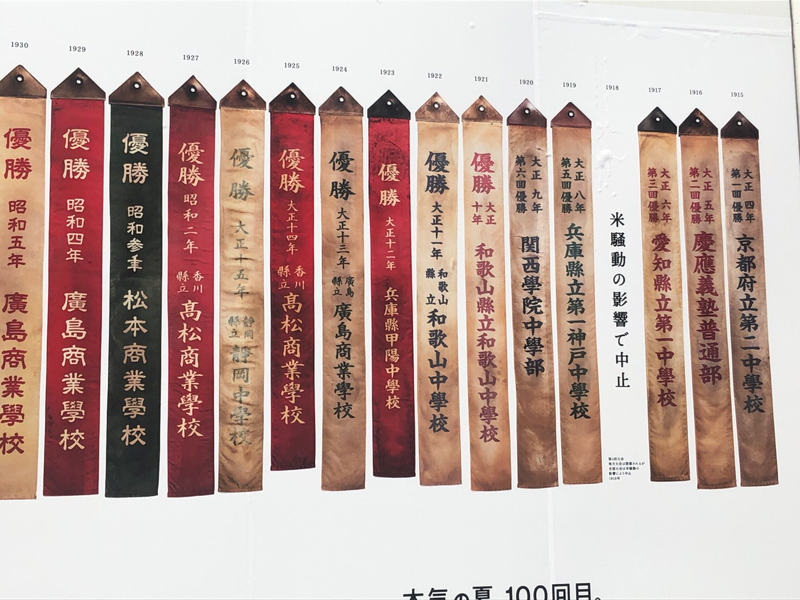 1930 1929 1928 1927 1926 1925 1924 1923 1922 1921 1920 1919 1918 1917 1916 1915
大正 四年
第一回優勝
京都府立第二中學校
大正 五年
第二回優勝
慶應義塾普通部
大正 六年
第三回優勝
愛知縣立第一中學校
米騒動の影響で中止
大正 八年
第五回優勝
兵庫縣立第一神戸中學校
大正 九年
第六回優勝
關西學院中學部
優勝
大正
十年
和歌山縣立和歌山中學校
優勝
大正十一年
和歌山
縣立
和歌山中學校
優勝
大正十二年
兵庫縣甲陽中學校
優勝
大正十三年
廣島
縣立
廣島商業學校
優勝
大正十四年
香川
縣立
高松商業學校
優勝
大正十五年
靜岡
縣立
靜岡中學校
優勝
昭和二年
香川
縣立
高松商業學校
優勝
昭和参年
松本商業學校
優勝
昭和四年
廣島商業學校
優勝
昭和五年
廣島商業學校
本気の夏、100回目。